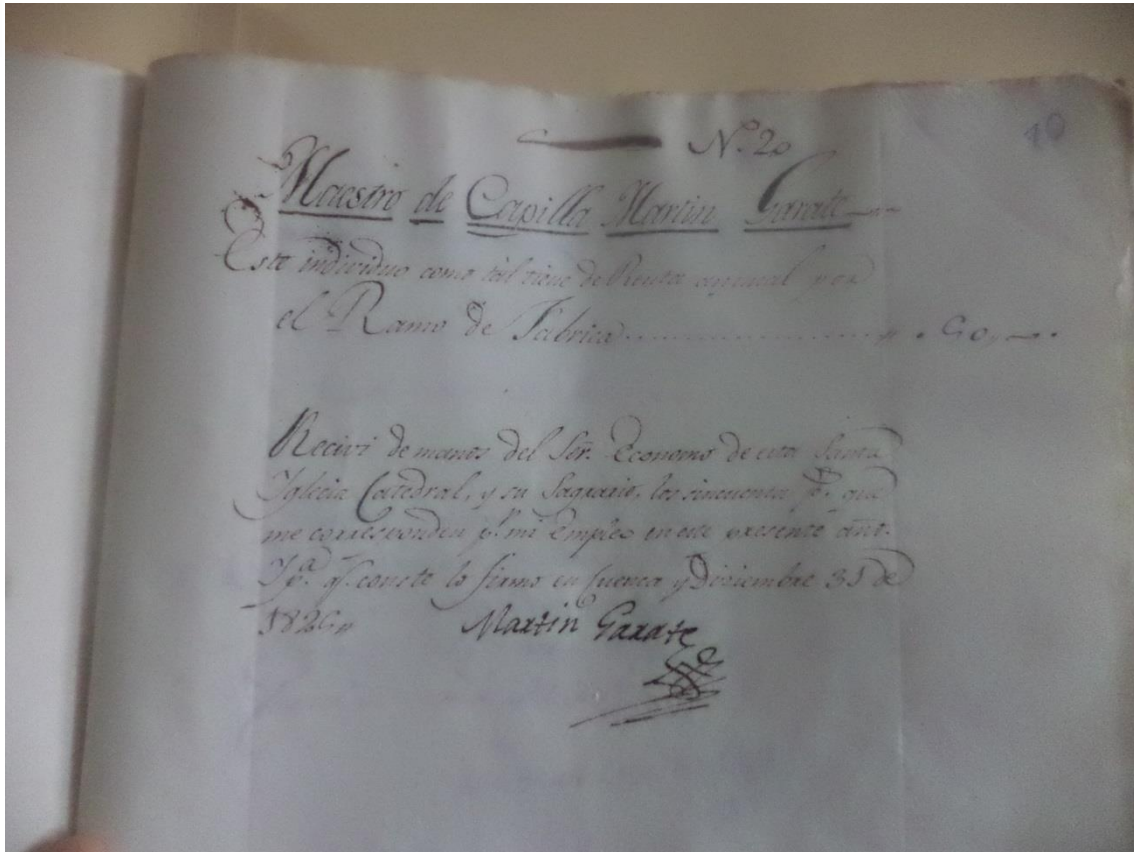 Nº. 20
10
Maestro de Capilla Martin Garate
Este individuo como tal tiene de Renta annual por
el Ramo de Fabrica
Recivi de manos del Señ. Economo de esta Santa
Yglecia Catedral, y su Sagrario, los sincuenta ps. que
me corresponden pr. mi Empleo en este presente año.
Y pa. qe. conste lo firmo en Cuenca y Diciembre 31 de
Martin Garate